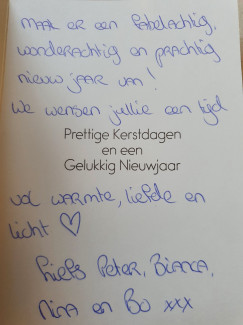 Maak er een fabelachtig,
wonderachtig en prachtig
nieuw jaar van!
We wensen jullie een tijd
Prettige Kerstdagen
en een
Gelukkig Nieuwjaar
vol warmte, liefde en
licht ♡
Liefs Peter, Bianca,
Nina en Bo xxx